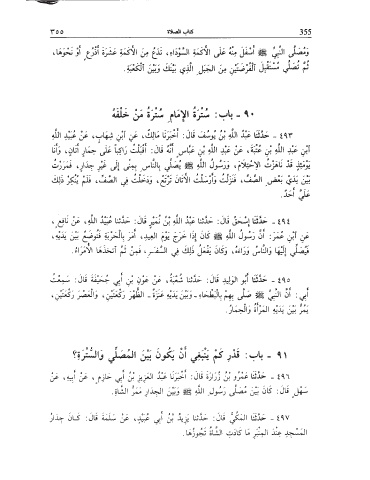 ٣٥٥ كتاب الصلاة 355
وَمُصَلَّى النَّبِيِّ ﷺ أَسْفَلَ مِنْهُ عَلَى الأَكَمَةِ السَّوْدَاءِ، تَدَعُ مِنَ الأَكَمَةِ عَشَرَةَ أَذْرُعٍ أَوْ نَحْوَهَا،
ثُمَّ تُصَلِّي مُسْتَقْبِلَ الْفُرْضَتَيْنِ مِنَ الجَبَلِ الَّذِي بَيْنَكَ وَبَيْنَ الْكَعْبَةِ.
٩٠ - باب: سُتْرَةُ الإِمَامِ سُتْرَةُ مَنْ خَلْفَهُ
٤٩٣ - حَدَّثَنَا عَبْدُ اللَّهِ بْنُ يُوسُفَ قَالَ: أَخْبَرَنَا مَالِكٌ، عَنِ ابْنِ شِهَابٍ، عَنْ عُبَيْدِ اللَّهِ
ابْنِ عَبْدِ اللَّهِ بْنِ عُتْبَةَ، عَنْ عَبْدِ اللَّهِ بْنِ عَبَّاسٍ أَنَّهُ قَالَ: أَقْبَلْتُ رَاكِبًا عَلَى حِمَارٍ أَتَانٍ، وَأَنَا
يَوْمَئِذٍ قَدْ نَاهَزْتُ الِاحْتِلَامَ، وَرَسُولُ اللَّهِ ﷺ يُصَلِّي بِالنَّاسِ بِمِنًى إِلَى غَيْرِ جِدَارٍ، فَمَرَرْتُ
بَيْنَ يَدَيْ بَعْضِ الصَّفِّ، فَنَزَلْتُ وَأَرْسَلْتُ الأَتَانَ تَرْتَعُ، وَدَخَلْتُ فِي الصَّفِّ، فَلَمْ يُنْكِرْ ذَلِكَ
عَلَيَّ أَحَدٌ.
٤٩٤ - حَدَّثَنَا إِسْحَقُ قَالَ: حَدَّثَنَا عَبْدُ اللَّهِ بْنُ نُمَيْرٍ قَالَ: حَدَّثَنَا عُبَيْدُ اللَّهِ، عَنْ نَافِعٍ،
عَنِ ابْنِ عُمَرَ: أَنَّ رَسُولَ اللَّهِ ﷺ كَانَ إِذَا خَرَجَ يَوْمَ العِيدِ، أَمَرَ بِالْحَرْبَةِ فَتُوضَعُ بَيْنَ يَدَيْهِ،
فَيُصَلِّي إِلَيْهَا وَالنَّاسُ وَرَاءَهُ، وَكَانَ يَفْعَلُ ذَلِكَ فِي السَّفَرِ، فَمِنْ ثَمَّ اتَّخَذَهَا الأُمَرَاءُ.
٤٩٥ - حَدَّثَنَا أَبُو الوَلِيدِ قَالَ: حَدَّثَنَا شُعْبَةُ، عَنْ عَوْنِ بْنِ أَبِي جُحَيْفَةَ قَالَ: سَمِعْتُ
أَبِي: أَنَّ النَّبِيَّ ﷺ صَلَّى بِهِمْ بِالْبَطْحَاءِ - وَبَيْنَ يَدَيْهِ عَنَزَةٌ - الظُّهْرَ رَكْعَتَيْنِ، وَالْعَصْرَ رَكْعَتَيْنِ،
يَمُرُّ بَيْنَ يَدَيْهِ المَرْأَةُ وَالْحِمَارُ.
٩١ - باب: قَدْرِ كَمْ يَنْبَغِي أَنْ يَكُونَ بَيْنَ الْمُصَلِّي وَالسُّتْرَةِ؟
٤٩٦ - حَدَّثَنَا عَمْرُو بْنُ زُرَارَةَ قَالَ: أَخْبَرَنَا عَبْدُ العَزِيزِ بْنُ أَبِي حَازِمٍ، عَنْ أَبِيهِ، عَنْ
سَهْلٍ قَالَ: كَانَ بَيْنَ مُصَلَّى رَسُولِ اللَّهِ ﷺ وَبَيْنَ الجِدَارِ مَمَرُّ الشَّاةِ.
٤٩٧ - حَدَّثَنَا المَكِّيُّ قَالَ: حَدَّثَنَا يَزِيدُ بْنُ أَبِي عُبَيْدٍ، عَنْ سَلَمَةَ قَالَ: كَانَ جِدَارُ
المَسْجِدِ عِنْدَ المِنْبَرِ مَا كَادَتِ الشَّاةُ تَجُوزُهَا.